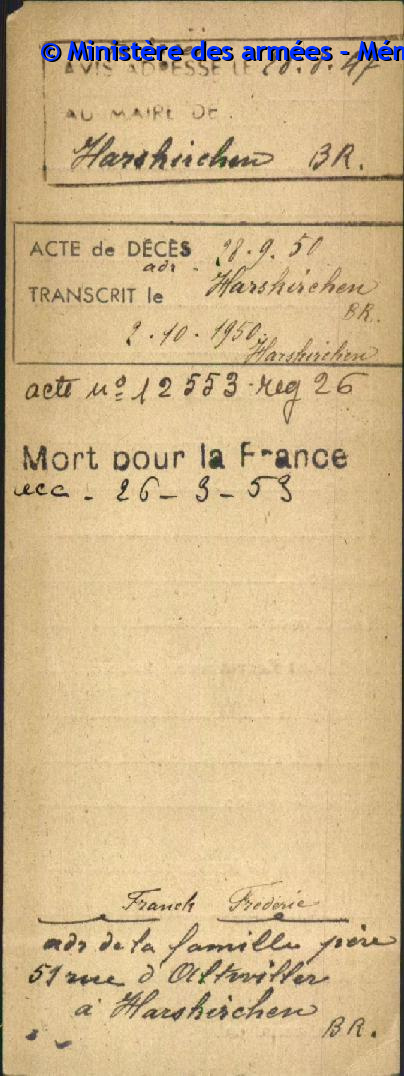 © Ministère des armées - Mém
AVIS ADRESSÉ LE 20.6.47
AU MAIRE DE
Harskirchen BR.
ACTE de DÉCÈS 28.9.50
adr.
Harskirchen
TRANSCRIT le
BR.
2.10.1950
Harskirchen
acte nº 12553 reg 26
Mort pour la France
26-3-53
Franck Frederic
adr de la famille père
51 rue d'Altwiller
à Harskirchen
BR.